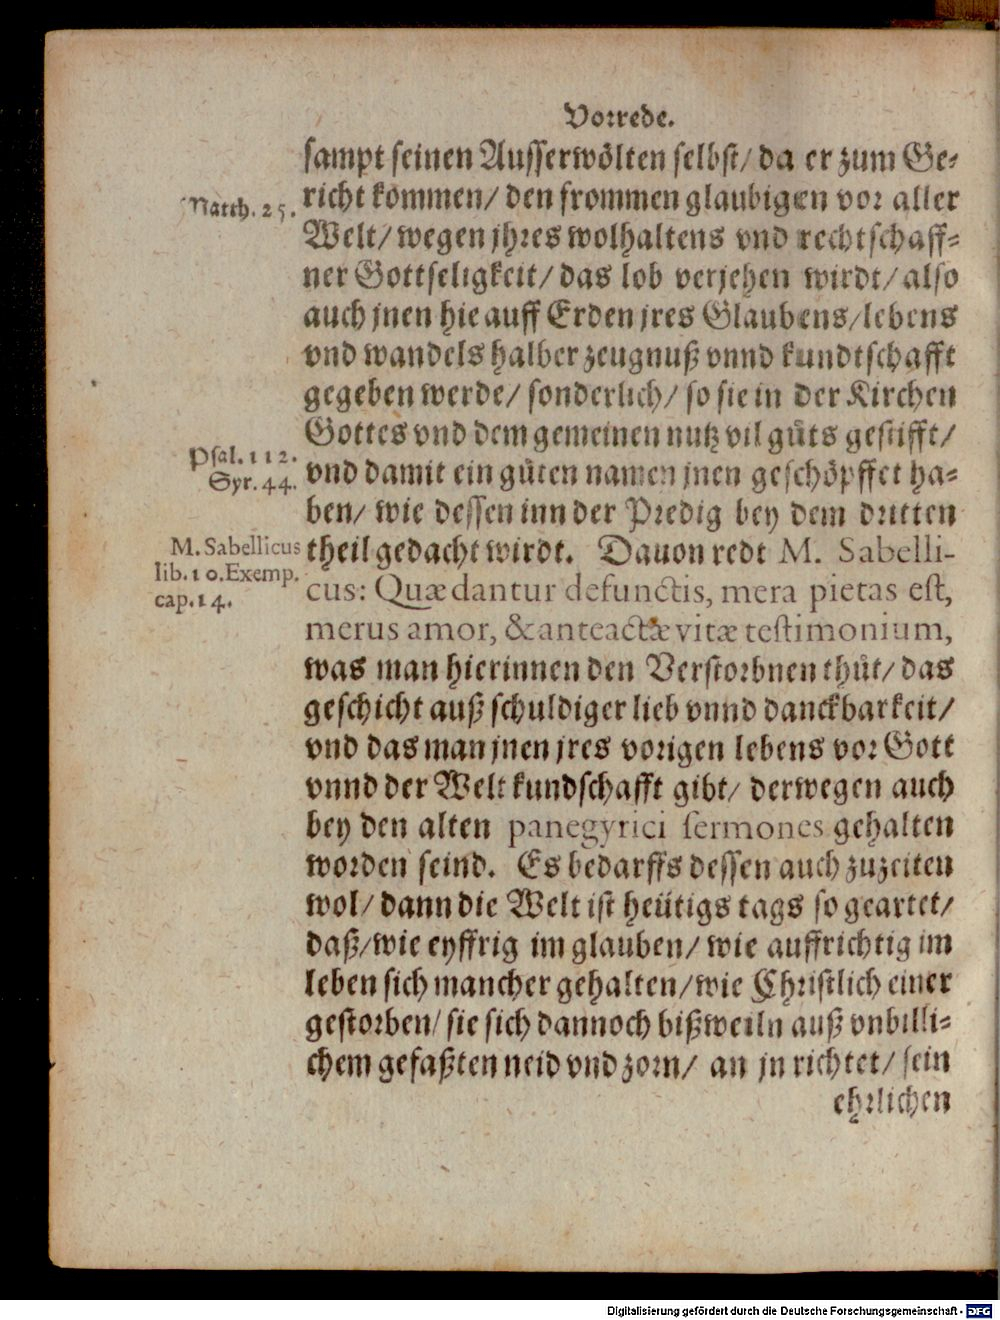 Vorrede.
sampt seinen Ausserwölten selbst/ da er zum Ge-
richt kommen/ den frommen glaubigen vor aller
Matth. 25.
Welt/ wegen jhres wolhaltens vnd rechtschaff-
ner Gottseligkeit/ das lob verjehen wirdt/ also
auch jnen hie auff Erden jres Glaubens/ lebens
vnd wandels halber zeugnuß vnnd kundtschafft
gegeben werde/ sonderlich/ so sie in der Kirchen
Gottes vnd dem gemeinen nutz vil gůts gestifft/
Psal. 112.
Syr. 44.
vnd damit ein gůten namen jnen geschöpffet ha-
ben/ wie dessen inn der Predig bey dem dritten
M. Sabellicus
lib. 10. Exemp.
cap. 14.
theil gedacht wirdt. Dauon redt M. Sabelli-
cus: Quæ dantur defunctis, mera pietas est,
merus amor, & anteactæ vitæ testimonium,
was man hierinnen den Verstorbnen thůt/ das
geschicht auß schuldiger lieb vnnd danckbarkeit/
vnd das man jnen jres vorigen lebens vor Gott
vnnd der Welt kundschafft gibt/ derwegen auch
bey den alten panegyrici sermones gehalten
worden seind. Es bedarffs dessen auch zuzeiten
wol/ dann die Welt ist heütigs tags so geartet/
daß/ wie eyffrig im glauben/ wie auffrichtig im
leben sich mancher gehalten/ wie Christlich einer
gestorben/ sie sich dannoch bißweiln auß vnbilli-
chem gefaßten neid vnd zorn/ an jn richtet/ sein
ehrlichen
Digitalisierung gefördert durch die Deutsche Forschungsgemeinschaft - DFG